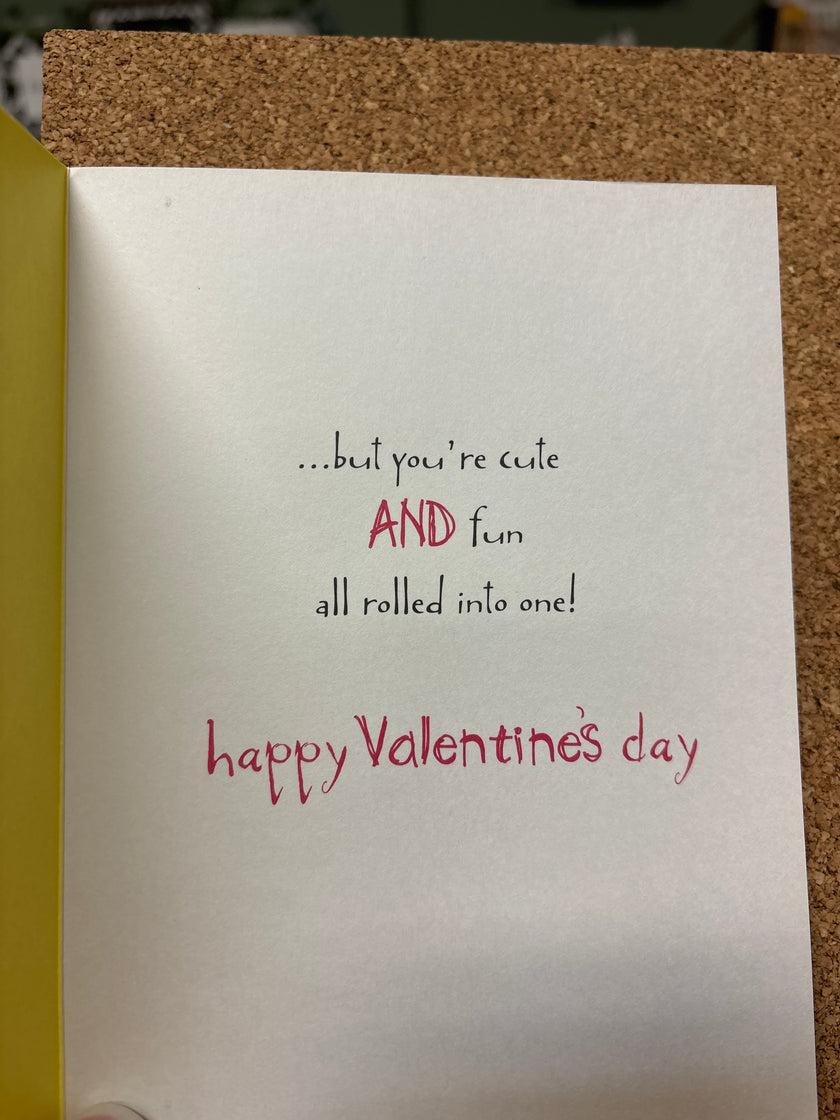 ...but you're cute
AND fun
all rolled into one!
happy Valentine's day